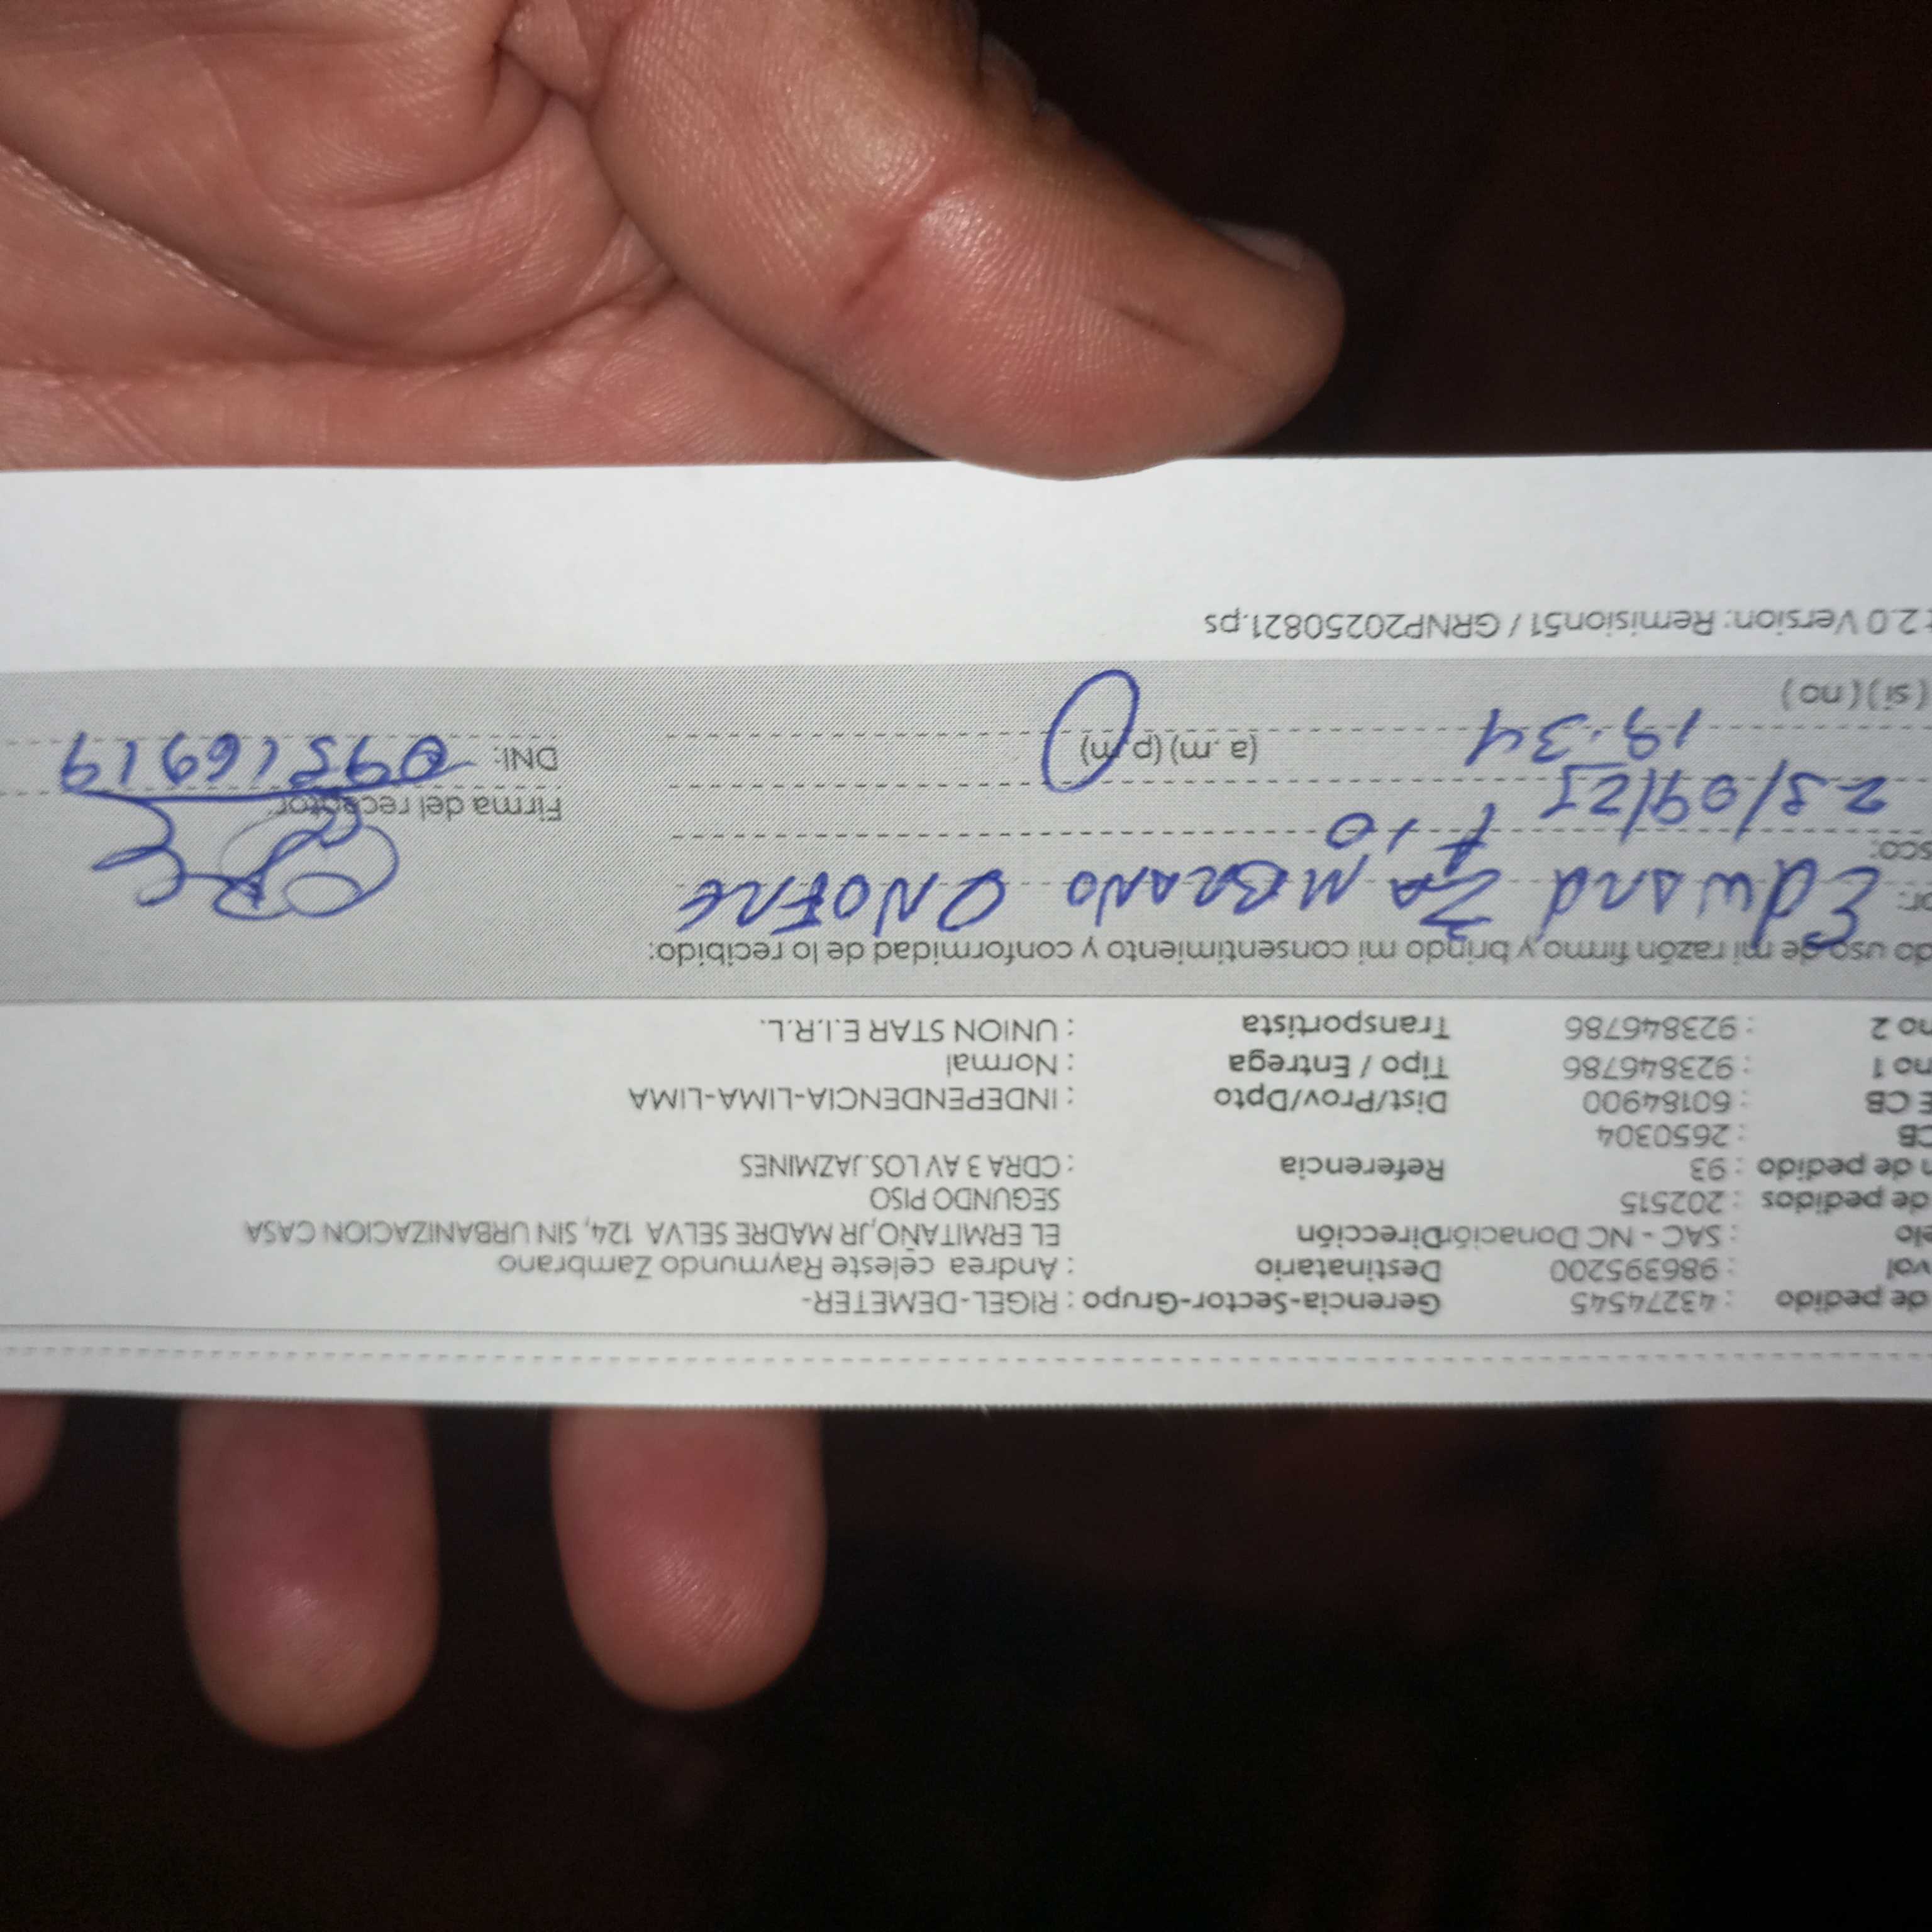 de pedido : 43274545 Gerencia-Sector-Grupo : RIGEL-DEMETER-
vol : 986395200 Destinatario : Andrea celeste Raymundo Zambrano
elo : SAC - NC Donación Dirección EL ERMITAÑO, JR MADRE SELVA 124, SIN URBANIZACION CASA
de pedidos : 202515 SEGUNDO PISO
n de pedido : 93 Referencia : CDRA 3 AV LOS JAZMINES
CB : 2650304
E CB : 60184900 Dist/Prov/Dpto : INDEPENDENCIA-LIMA-LIMA
no 1 : 923846786 Tipo / Entrega : Normal
no 2 : 923846786 Transportista : UNION STAR E.I.R.L.
do uso de mi razón firmo y brindo mi consentimiento y conformidad de lo recibido:
or: Edward ZAMBRANO ONOFRE
sco: tio
Firma del receptor:
23/09/25
19:34 (a. m) (p. m) DNI: 09516919
(si) (no)
t 2.0 Version: Remision51 / GRNP20250821.ps